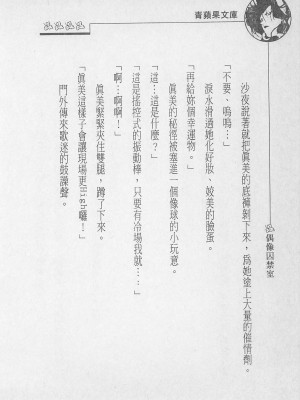 青蘋果文庫
偶像囚禁室
沙夜說著就把真美的底褲剝下來，為她塗上大量的催情劑。
「不要、嗚嗚…」
淚水滑過她化好妝、姣美的臉蛋。
「再給妳個幸運物。」
真美的秘徑被塞進一個像球的小玩意。
「這…這是什麼？」
「這是搖控式的振動棒，只要有冷場我就…：」
「啊…啊啊！」
真美緊緊夾住雙腿，蹲了下來。
「真美這樣子會讓現場更High囉！」
門外傳來歌迷的鼓譟聲。